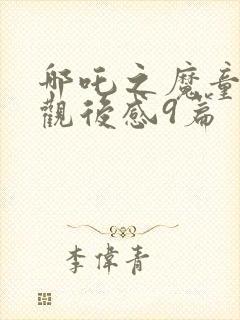 哪吒之魔童
觀後感9篇
李偉青